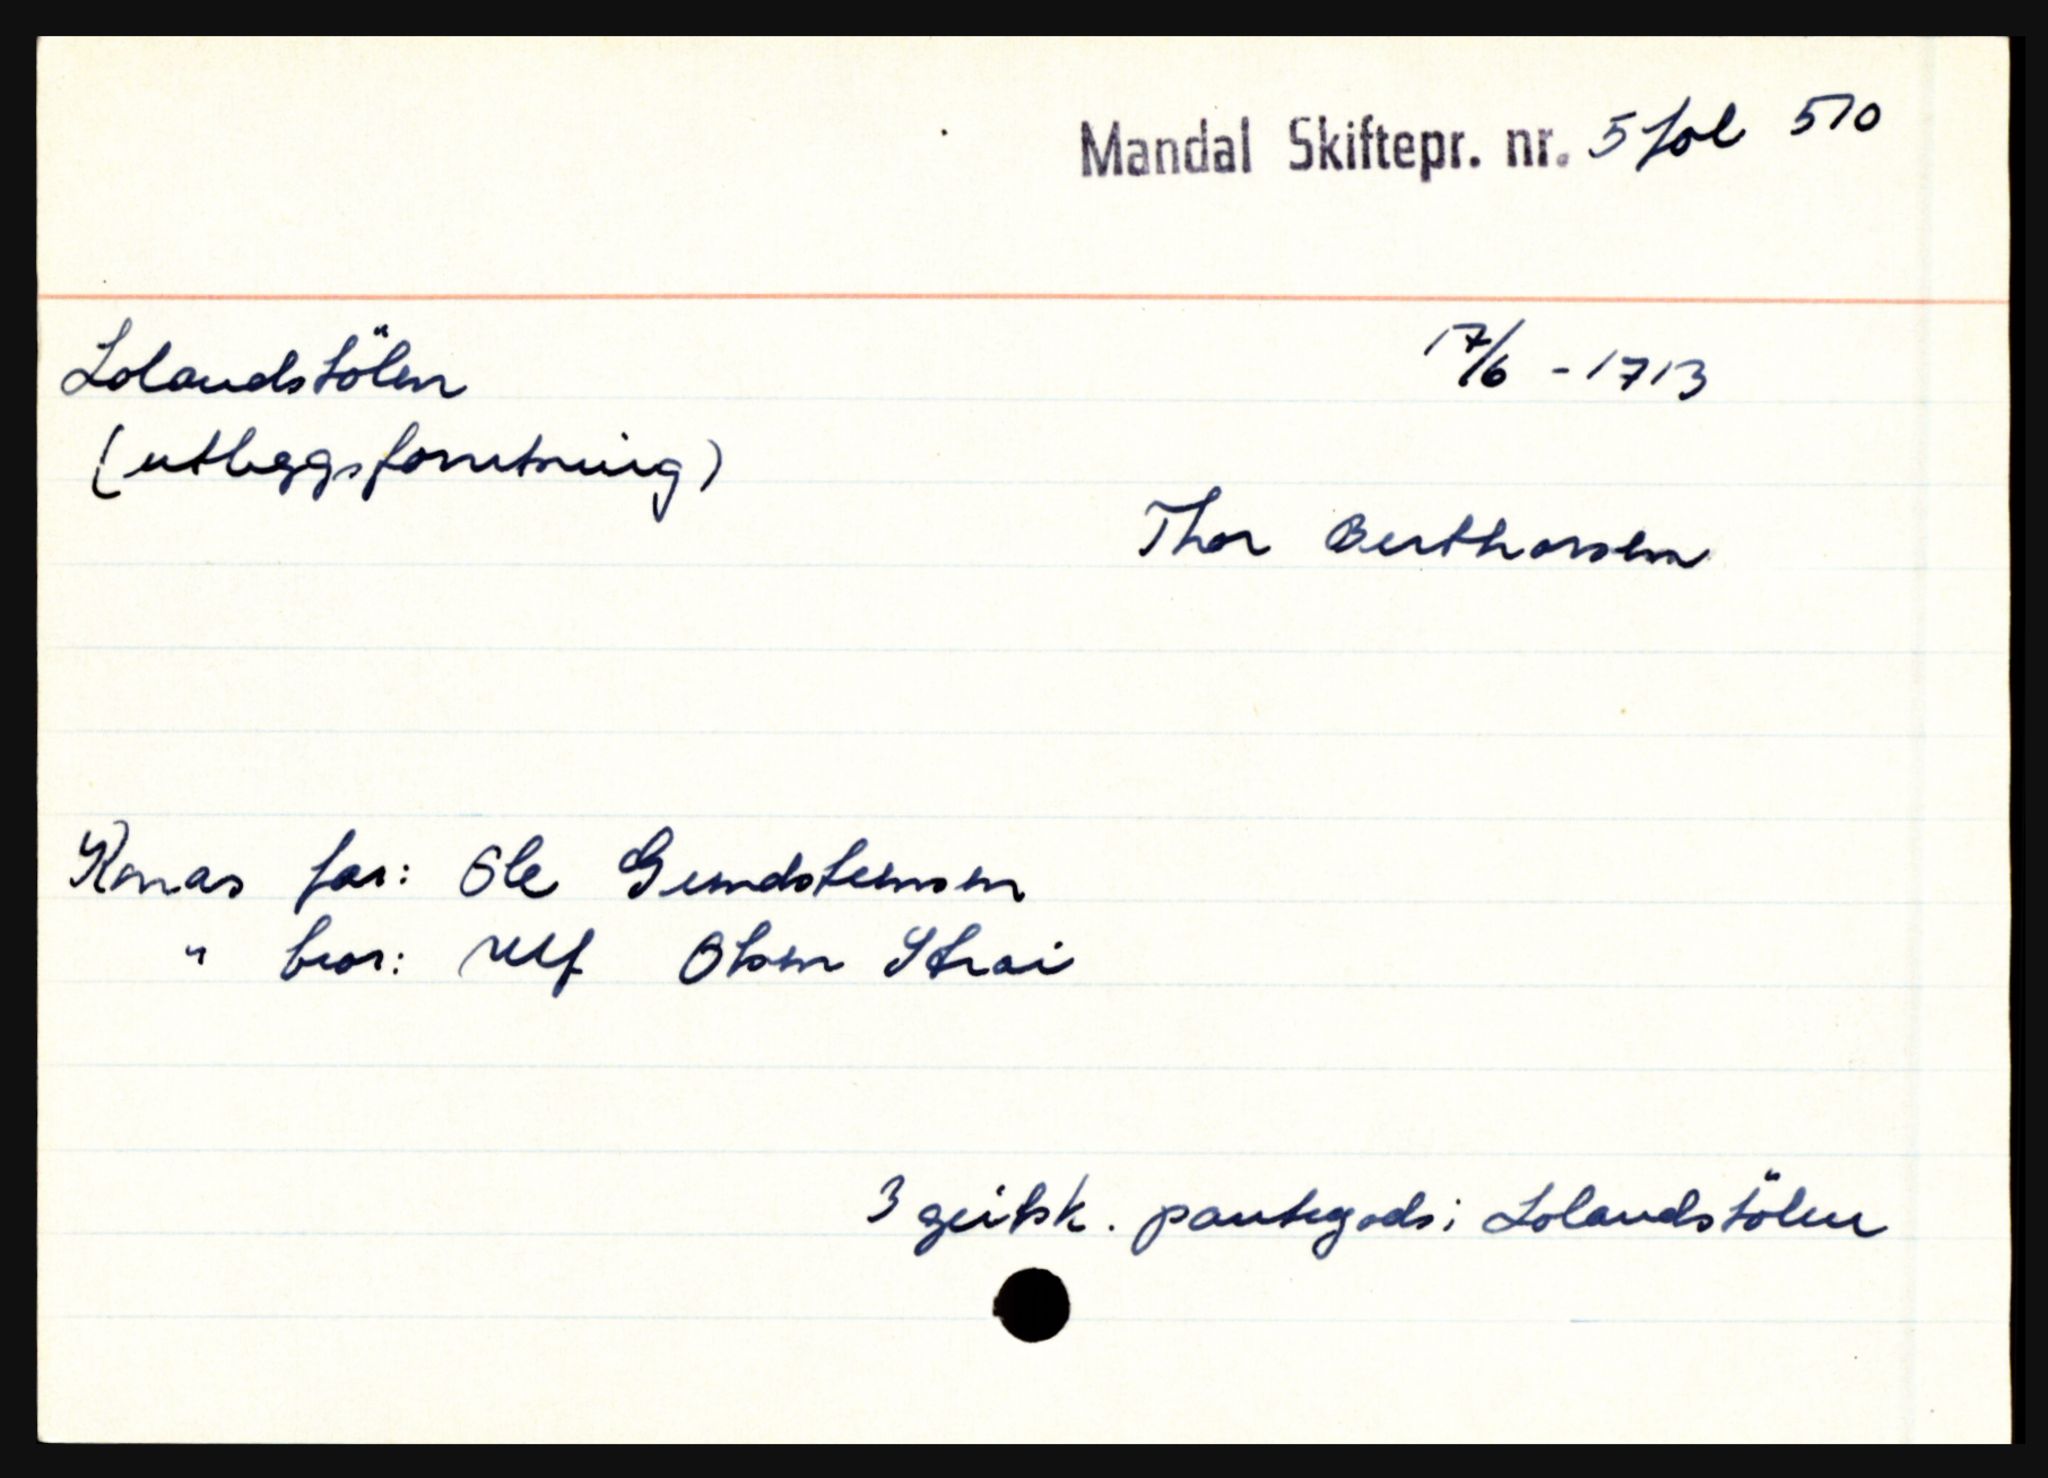 Mandal Skiftepr. nr. 5 fol 510
Lolandstölen 17/6 - 1713
(utleggsforretning)
Thor Berthorsen
Konas far: Ole Gundsteinsen
" bror: Ulf Olsen Strai
3 geitsk. pantegods i Lolandstölen